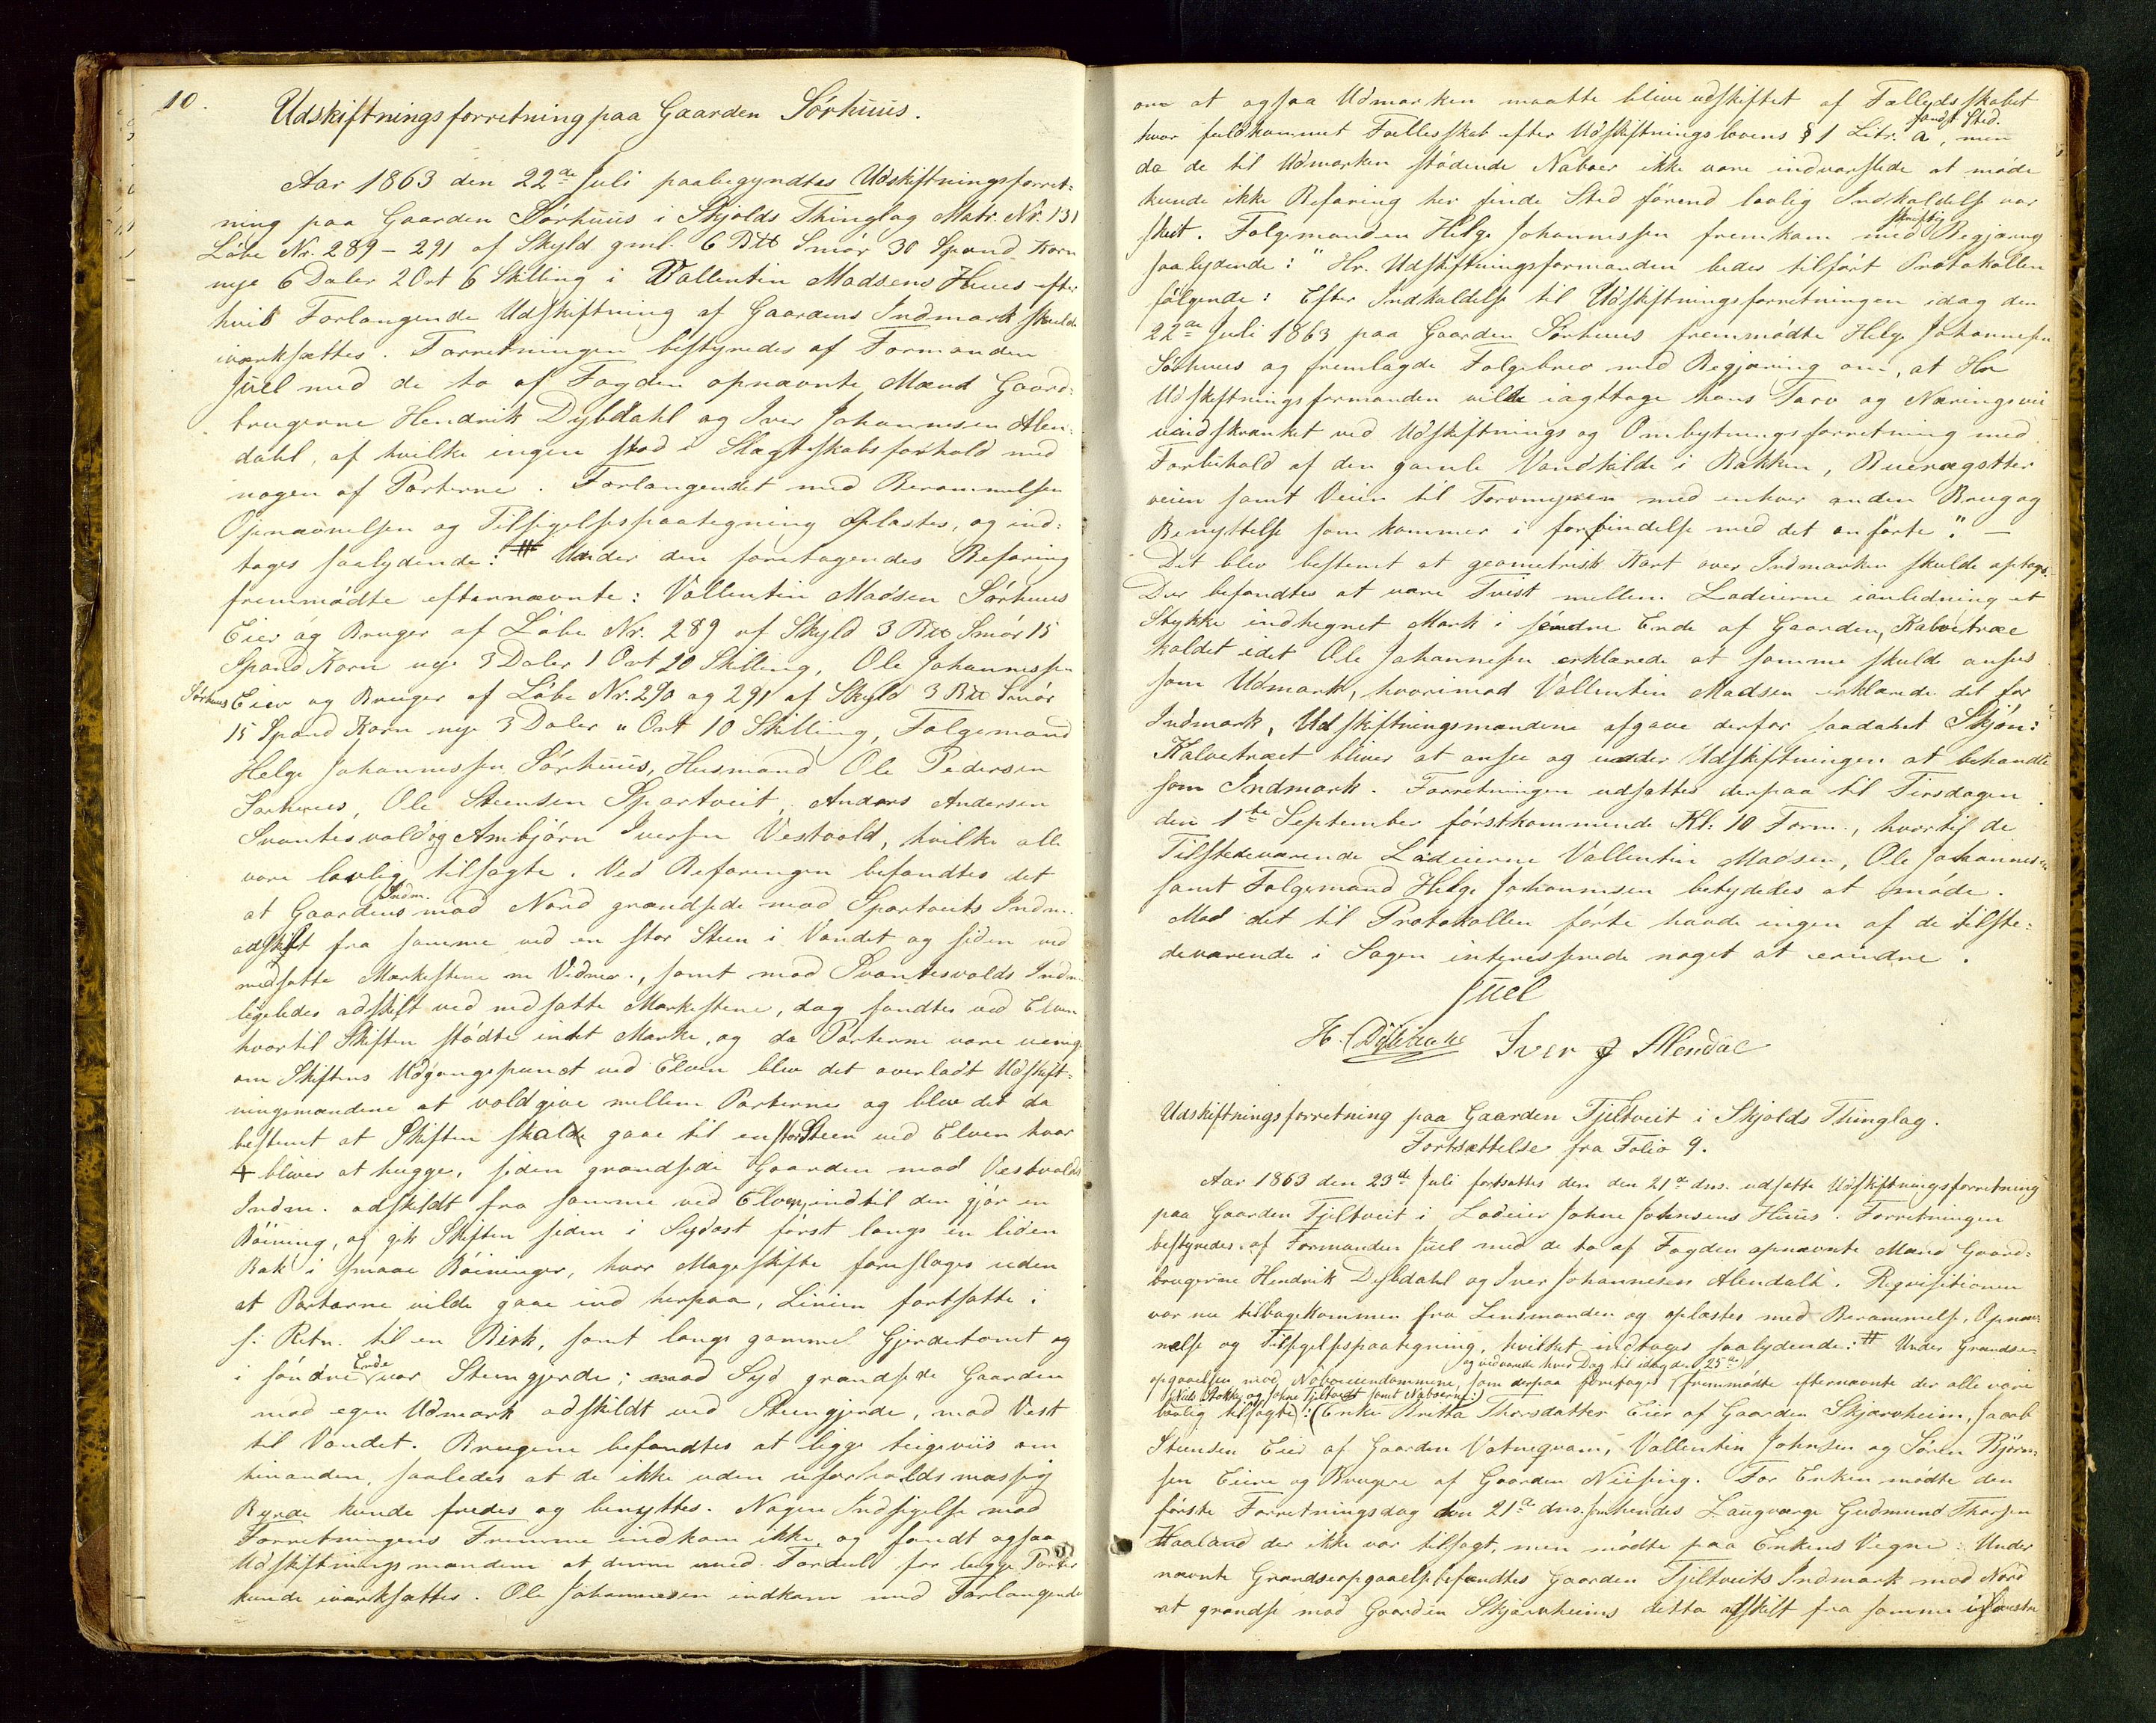 10.
Udskiftningsforretning paa Gaarden Sörhuus.
Aar 1863 den 22de Juli paabegyndtes Udskiftningsforret-
ning paa Gaarden Sörhuus i Skjolds Thinglag Matr. Nr. 131
Löbe Nr. 289 - 291 af Skyld gml. 6 Smör 30 Spand Korn
nye 6 Daler 2 Ort 6 Skilling i Vallentin Madsens Huus efter
hvis Forlangende Udskiftning af Gaardens Indmark skulde
iværksættes. Forretningen bestyredes af Formanden
Juel med de to af Fogden opnævnte Mænd Gaard-
brugerne Hendrik Dybdahl og Iver Johannesen Alen-
dahl, af hvilke ingen stod i Slægtskabsforhold med
nogen af Parterne. Forlangendet med Berammelsen
Opnævnelsen og Tilsigelsespaategning oplæstes, og ind-
tages saalydende: # Under den foretagendes Befaring
fremmödte efternævnte: Vallentin Madsen Sörhuus
Eier og Bruger af Löbe Nr. 289 af Skyld 3 Smör 15
Spand Korn nye 3 Daler 1 Ort 20 Skilling, Ole Johannessen
Sörhuus Eier og Bruger af Löbe Nr. 290 og 291 af Skyld 3 Smör
15 Spand Korn nye 3 Daler " Ort 10 Skilling, Folgemand
Helge Johannessen Sörhuus, Husmand Ole Pedersen
Sörhuus, Ole Steensen Spartveit, Anders Andersen
Svantesvold og Ambjörn Iversen Vestvold, hvilke alle
vare lovlig tilsagte. Ved Befaringen befandtes det
at Gaardens Indm. mod Nord grændsede mod Spartveits Indm.
adskilt fra samme ved en stor Steen i Vandet og siden ved
nedsatte Mærkestene m Vidner., samt mod Svantesvolds Indm.
ligeledes adskilt ved nedsatte Mærkestene, dog fandtes ved Elven
hvortil Skiften stödte intet Mærke, og da Parterne vare uenige
om Skiftens Udgangspunct ved Elven blev det overladt Udskift-
ningsmændene at voldgive mellem Parterne og blev det da
bestemt at Skiften skulde gaae til en stor Steen ved Elven hvor
+ bliver at hugge, siden grændsede Gaarden mod Vestvolds
Indm. adskildt fra samme ved Elven, indtil den gjör en
Böining, og gik Skiften siden i Sydost först langs en liden
Bæk i smaae Böininger, hvor Mageskifte foreslages uden
at Parterne vilde gaae ind herpaa, Linien fortsatte i
s: Retn. til en Birk, samt langs gammel Gjerdetomt og
i söndre Ende var Steengjerde; mod Syd grændsede Gaarden
mod egen Udmark adskildt ved Steengjerde, mod Vest
til Vandet. Brugene befandtes at ligge teigeviis om
hinanden, saaledes at de ikke uden uforholdsmæssig
Byrde kunde fredes og benyttes. Nogen Indsigelse mod
Forretningens Fremme indkom ikke og fandt ogsaa
Udskiftningsmændene at denne med Fordeel for begge Parter
kunde iværksættes. Ole Johannesen indkom med Forlangende
om at ogsaa Udmarken maatte blive udskiftet af Fælledsskabet
hvor fuldkommet Fællesskab efter Udskiftningslovens § 1 Litr. a fandt Sted, men
da de til Udmarken stödende Naboer ikke vare indvarslede at möde
kunde ikke Befaring her finde Sted förend lovlig Indkaldelse var
skeet. Folgemanden Helge Johannessen fremkom med skriftlig Begjæring
saalydende: "Hr. Udskiftningsformanden bedes tilfört Protokollen
fölgende: Efter Indkaldelse til Udskiftningsforretningen idag den
22de Juli 1863 paa Gaarden Sörhuus fremmödte Helge Johannesen
Sörhuus og fremlagde Folgebrev med Begjæring om, at Hr
Udskiftningsformanden vilde iagttage hans Tarv og Næringsvei
uindskrænket ved Udskiftnings og Ombytningsforretning med
Forbehold af den gamle Vandkilde i Bakken,
veien samt Veien til Torvmyren med enhver anden Brug og
Benyttelse som kommer i forbindelse med det anförte." —
Det blev bestemt at geometrisk Kart over Indmarken skulde optages.
Der befandtes at være Tvist mellem Lodeierne ianledning et
Stykke indhegnet Mark i söndre Ende af Gaarden, Kalvetræe
kaldet idet Ole Johannesen erklærede at samme skulde ansees
som Udmark, hvorimod Vallentin Madsen erklærede det for
Indmark, Udskiftningsmændene afgave derfor saadant Skjön:
Kalvetræet bliver at ansee og under Udskiftningen at behandle
som Indmark. Forretningen udsattes derpaa til Tirsdagen
den 1ste September förstkommende Kl. 10 Form., hvortil de
Tilstedeværende Lodeierne Vallentin Madsen, Ole Johannesen
samt Folgemand Helge Johannesen betydedes at möde.
Mod det til Protokollen förte havde ingen af de tilste-
deværende i Sagen interesserede noget at erindre.
Juel
H. Dybdahl Iver J Alendal
Udskiftningsforretning paa Gaarden Tjeltveit i Skjolds Thinglag.
Fortsættelse fra Folio 9.
Aar 1863 den 23de Juli fortsattes den den 21de ds. udsatte Udskiftningsforretning
paa Gaarden Tjeltveit i Lodeier Johne Johnsens Huus. Forretningen
bestyredes af Formanden Juel med de to af Fogden opnævnte Mænd Gaard-
brugerne Hendrik Dybdahl og Iver Johannesen Alendahl. Reqvisitionen
var nu tilbagekommen fra Lensmanden og oplæstes med Berammelse, Opnæv-
nelse og Tilsigelsespaategning, hvilket indtages saalydende: # Under Grændse-
og vedvarede hver Dag til idag den 25de
opgaaelsen mod Naboeiendommene, som derpaa foretages fremmödte efternævnte der alle vare
Nils Stokke og Johne Tjeltveit samt Naboerne:)
lovlig tilsagte: (Enke Britta Thorsdatter Eier af Gaarden Skjærveheim, Jacob
Steensen Eier af Gaarden Vatneqvam, Vallentin Johnsen og Sören Bjørn-
sen Eiere og Brugere af Gaarden Nüsing. For Enken mödte den
förste Forretningsdag den 21de ds. som hendes Laugværge Gudmund Thorsen
Haaland der ikke var tilsagt, men mödte paa Enkens Vegne. Under
nævnte Grændseopgaaelse befandtes Gaarden Tjeltveits Indmark mod Nord
at grændse mod Gaarden Skjærveheims detto adskilt fra samme i